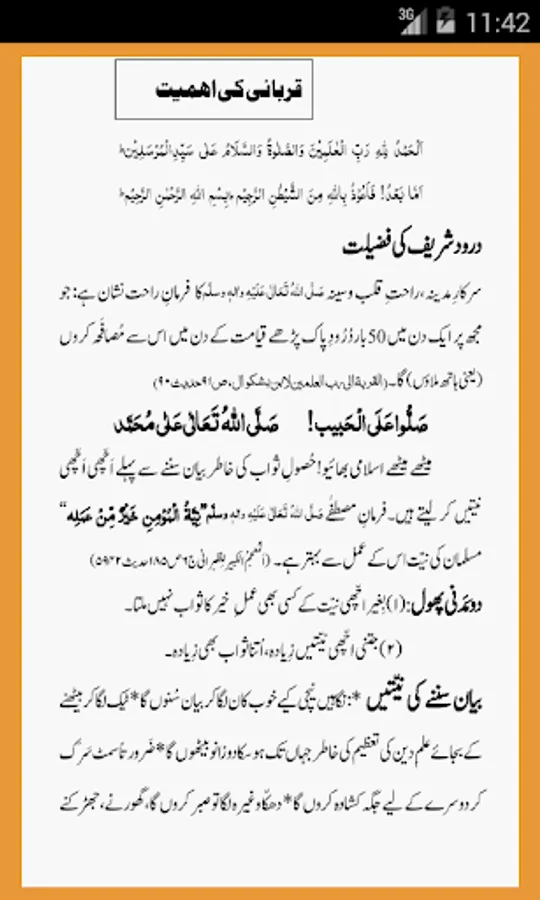 3G 11:42
قربانی کی اہمیت
اَلْحَمْدُ لِلّٰہِ رَبِّ الْعٰلَمِیْنَ وَالصَّلٰوۃُ وَالسَّلَامُ عَلٰی سَیِّدِالْمُرْسَلِیْنَ ط
اَمَّا بَعْدُ! فَاَعُوْذُ بِاللّٰہِ مِنَ الشَّیْطٰنِ الرَّجِیْمِ ط بِسْمِ اللّٰہِ الرَّحْمٰنِ الرَّحِیْمِ ط
درود شریف کی فضیلت
سرکارِ مدینہ، راحتِ قلب وسینہ صَلَّی اللہُ تَعَالٰی عَلَیْہِ واٰلِہٖ وسلَّم کا فرمانِ راحت نشان ہے: جو
مجھ پر ایک دن میں 50 بار دُرُودِ پاک پڑھے قیامت کے دن میں اس سے مُصافَحہ کروں
(یعنی ہاتھ ملاؤں) گا۔ (القربۃ الی رب العلمین لابن بشکوال، ص۹۱ حدیث ۹۰)
صَلُّوا عَلَی الْحَبِیب! صَلَّی اللہُ تَعَالٰی عَلٰی مُحَمَّد
میٹھے میٹھے اسلامی بھائیو! حُصولِ ثواب کی خاطر بیان سننے سے پہلے اَچّھی اَچّھی
نیّتیں کر لیتے ہیں۔ فرمانِ مصطَفٰے صَلَّی اللہُ تَعَالٰی عَلَیْہِ واٰلِہٖ وسلَّم ”نِیَّۃُ الْمُؤمِنِ خَیْرٌ مِّنْ عَمَلِہٖ“
مسلمان کی نیّت اس کے عمل سے بہتر ہے۔ (اَلْمُعْجَمُ الْکبیر لِلطّبَرانی ج۶ ص۱۸۵ حدیث ۵۹۴۲)
دو مَدَنی پھول: (۱) بغیر اچّھی نیّت کے کسی بھی عملِ خیر کا ثواب نہیں ملتا۔
(۲) جتنی اچّھی نیّتیں زِیادہ، اُتنا ثواب بھی زِیادہ۔
بیان سننے کی نیّتیں *: نگاہیں نیچی کیے خوب کان لگا کر بیان سُنوں گا * ٹیک لگا کر بیٹھنے
کے بجائے علمِ دین کی تعظیم کی خاطر جہاں تک ہو سکا دو زانو بیٹھوں گا * ضَرورتاً سمٹ سَرَک
کر دوسرے کے لیے جگہ کشادہ کروں گا * دھکّا وغیرہ لگا تو صبر کروں گا، گھورنے، جھڑکنے